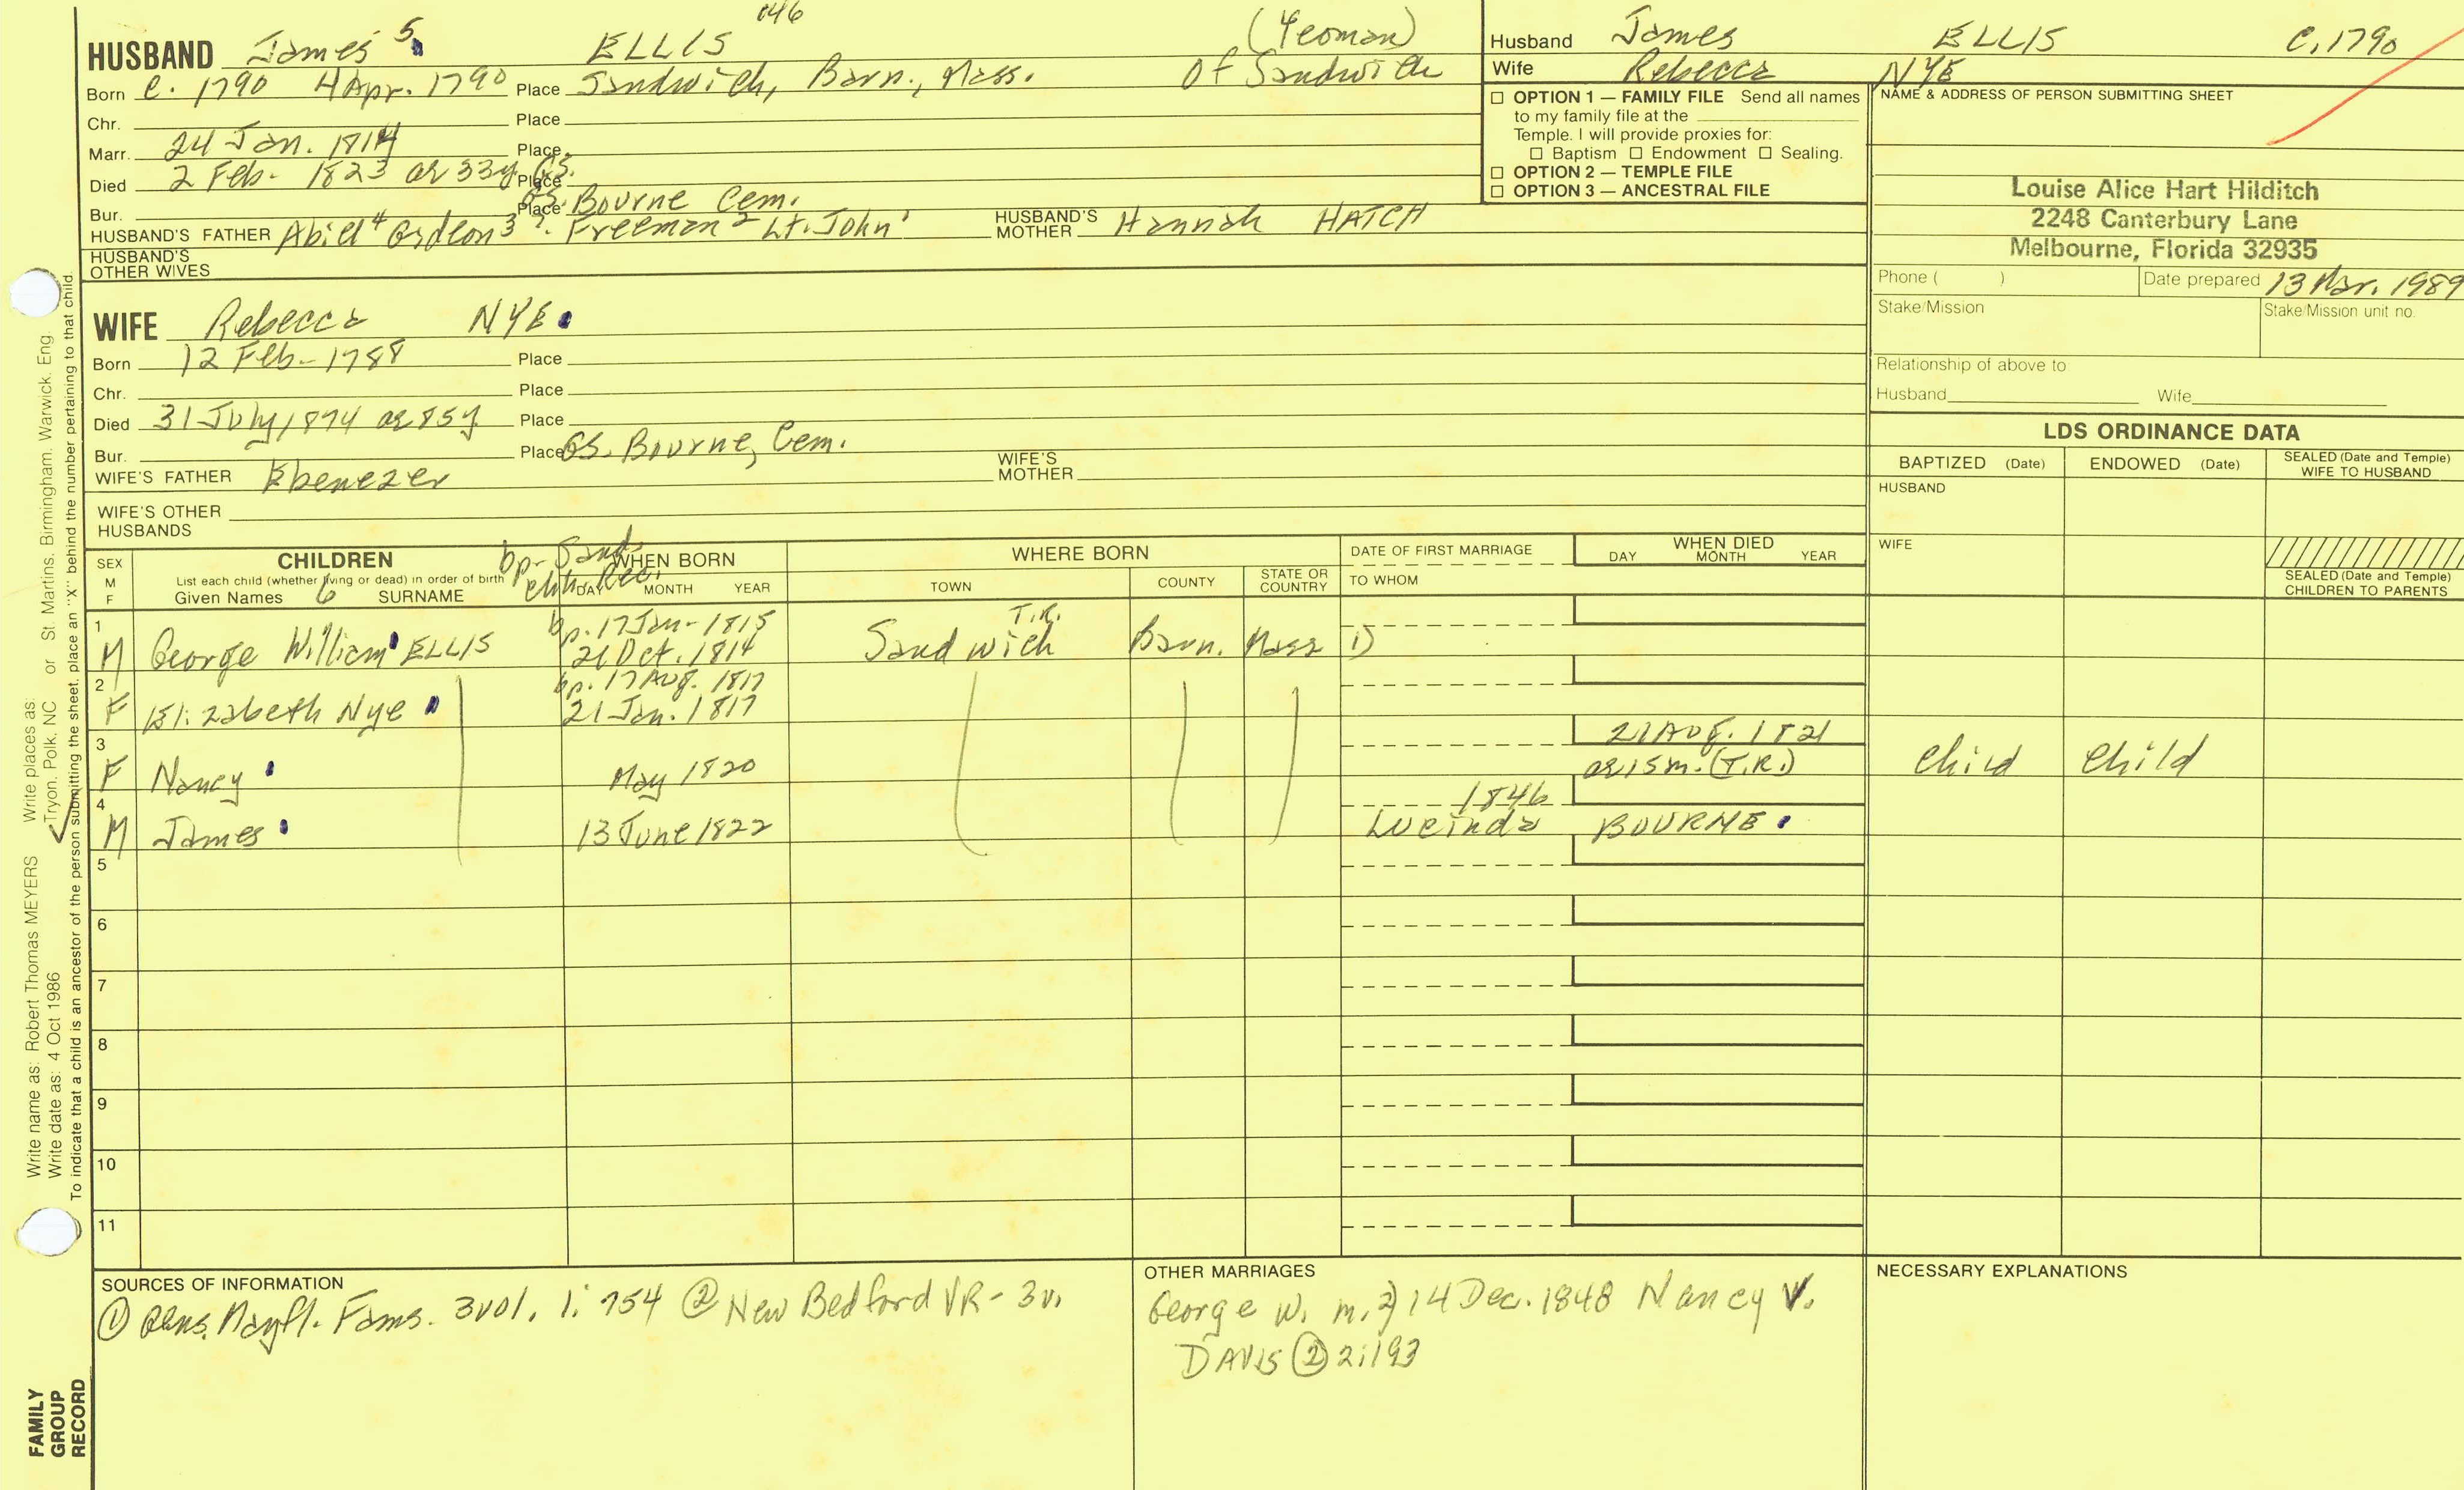 046
HUSBAND James 5 ELLIS (Yeoman)
Born C. 1790 4 Apr. 1790 Place Sandwich, Barn., Mass. Of Sandwich
Chr. Place
Marr. 24 Jan. 1814 Place
Died 2 Feb. 1823 ae 33y GS. Place
Bur. Place GS. Bourne Cem.
HUSBAND'S FATHER Abiel 4 Gideon 3 ? Freeman 2 Lt. John 1 HUSBAND'S MOTHER Hannah HATCH
HUSBAND'S OTHER WIVES
WIFE Rebecca NYE
Born 12 Feb. 1788 Place
Chr. Place
Died 31 July 1874 ae 85y Place
Bur. Place GS. Bourne, Cem.
WIFE'S FATHER Ebenezer WIFE'S MOTHER
WIFE'S OTHER HUSBANDS
Husband James ELLIS C. 1790
Wife Rebecca NYE
☐ OPTION 1 — FAMILY FILE Send all names
to my family file at the
Temple. I will provide proxies for:
☐ Baptism ☐ Endowment ☐ Sealing.
☐ OPTION 2 — TEMPLE FILE
☐ OPTION 3 — ANCESTRAL FILE
NAME & ADDRESS OF PERSON SUBMITTING SHEET
Louise Alice Hart Hilditch
2248 Canterbury Lane
Melbourne, Florida 32935
Phone ( ) Date prepared 13 Mar. 1989
Stake/Mission Stake/Mission unit no.
Relationship of above to
Husband Wife
LDS ORDINANCE DATA
BAPTIZED (Date) ENDOWED (Date) SEALED (Date and Temple) WIFE TO HUSBAND
HUSBAND
WIFE
SEALED (Date and Temple)
CHILDREN TO PARENTS
SEX M F
CHILDREN
List each child (whether living or dead) in order of birth
Given Names 6 SURNAME
bp. Sand. chh. Rec.
WHEN BORN
DAY MONTH YEAR
WHERE BORN
TOWN COUNTY STATE OR COUNTRY
DATE OF FIRST MARRIAGE
TO WHOM
WHEN DIED
DAY MONTH YEAR
bp. 17 Jan. 1815 T.R.
1 M George William ELLIS 21 Oct. 1814 Sandwich Barn. Mass 1)
bp. 17 Aug. 1817
2 F Elizabeth Nye 21 Jan. 1817
21 Aug. 1821
3 F Nancy May 1820 ae 15m. (T.R.) Child Child
1846
4 M James 13 June 1822 Lucinda BOURNE
5
6
7
8
9
10
11
SOURCES OF INFORMATION
① Gens. Mayfl. Fams. 3vol. 1:754 ② New Bedford VR - 3v.
OTHER MARRIAGES
George W. m. 2) 14 Dec. 1848 Nancy V.
DAVIS ② 2:193
NECESSARY EXPLANATIONS
Write name as: Robert Thomas MEYERS Write places as:
Write date as: 4 Oct 1986 Tryon, Polk, NC or St. Martins, Birmingham, Warwick, Eng.
To indicate that a child is an ancestor of the person submitting the sheet, place an "X" behind the number pertaining to that child.
FAMILY
GROUP
RECORD